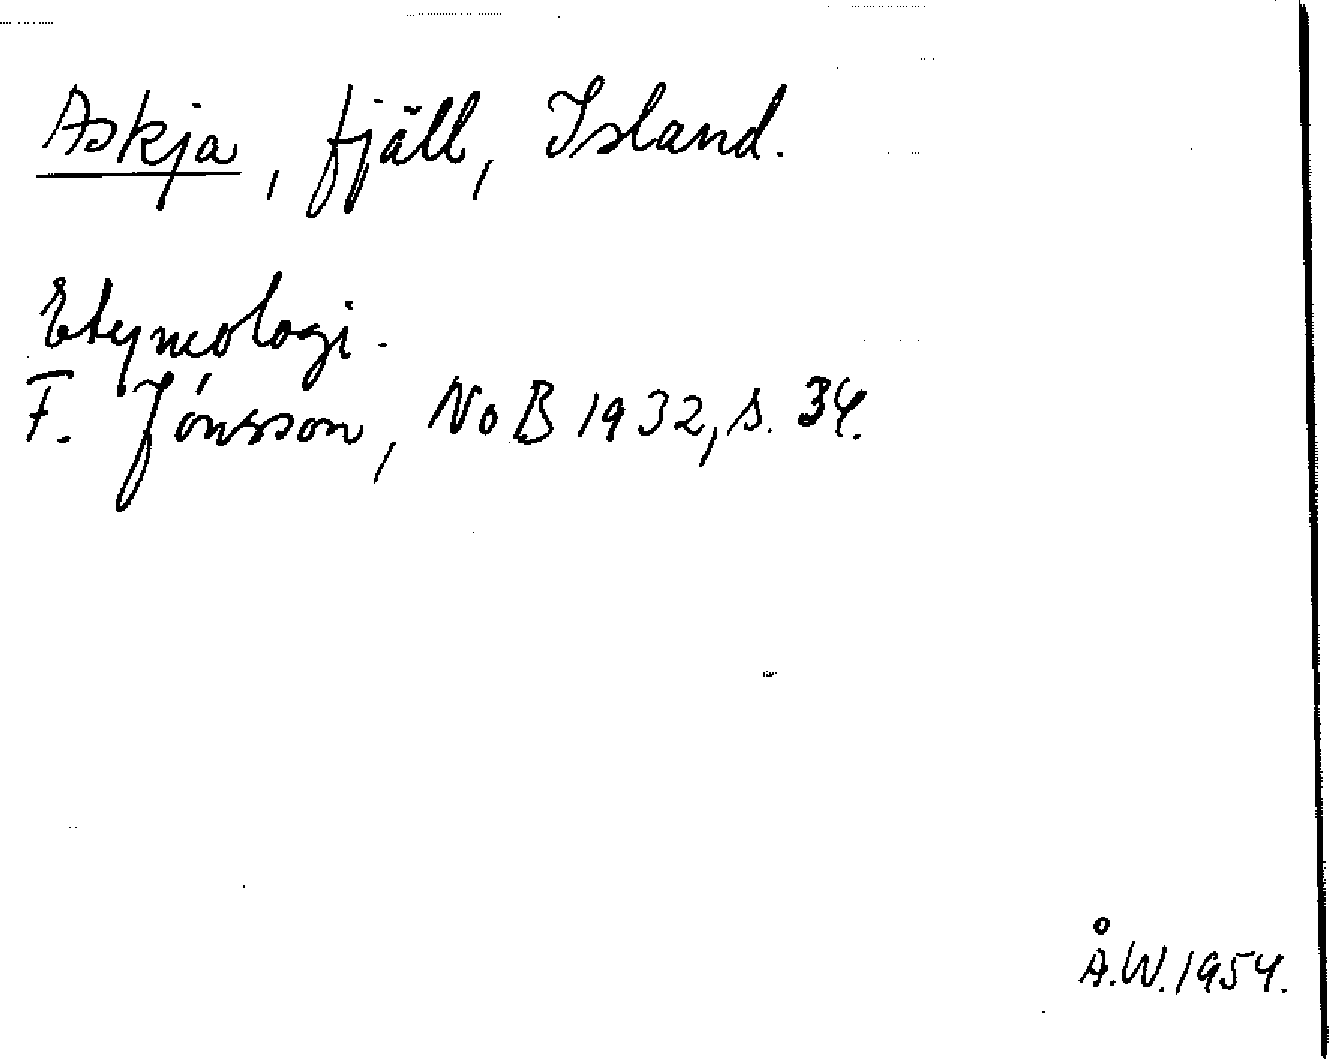 Askja, fjäll, Island.
Etymologi.
F. Jónsson, NoB 1932, s. 34.
Å.W. 1954.